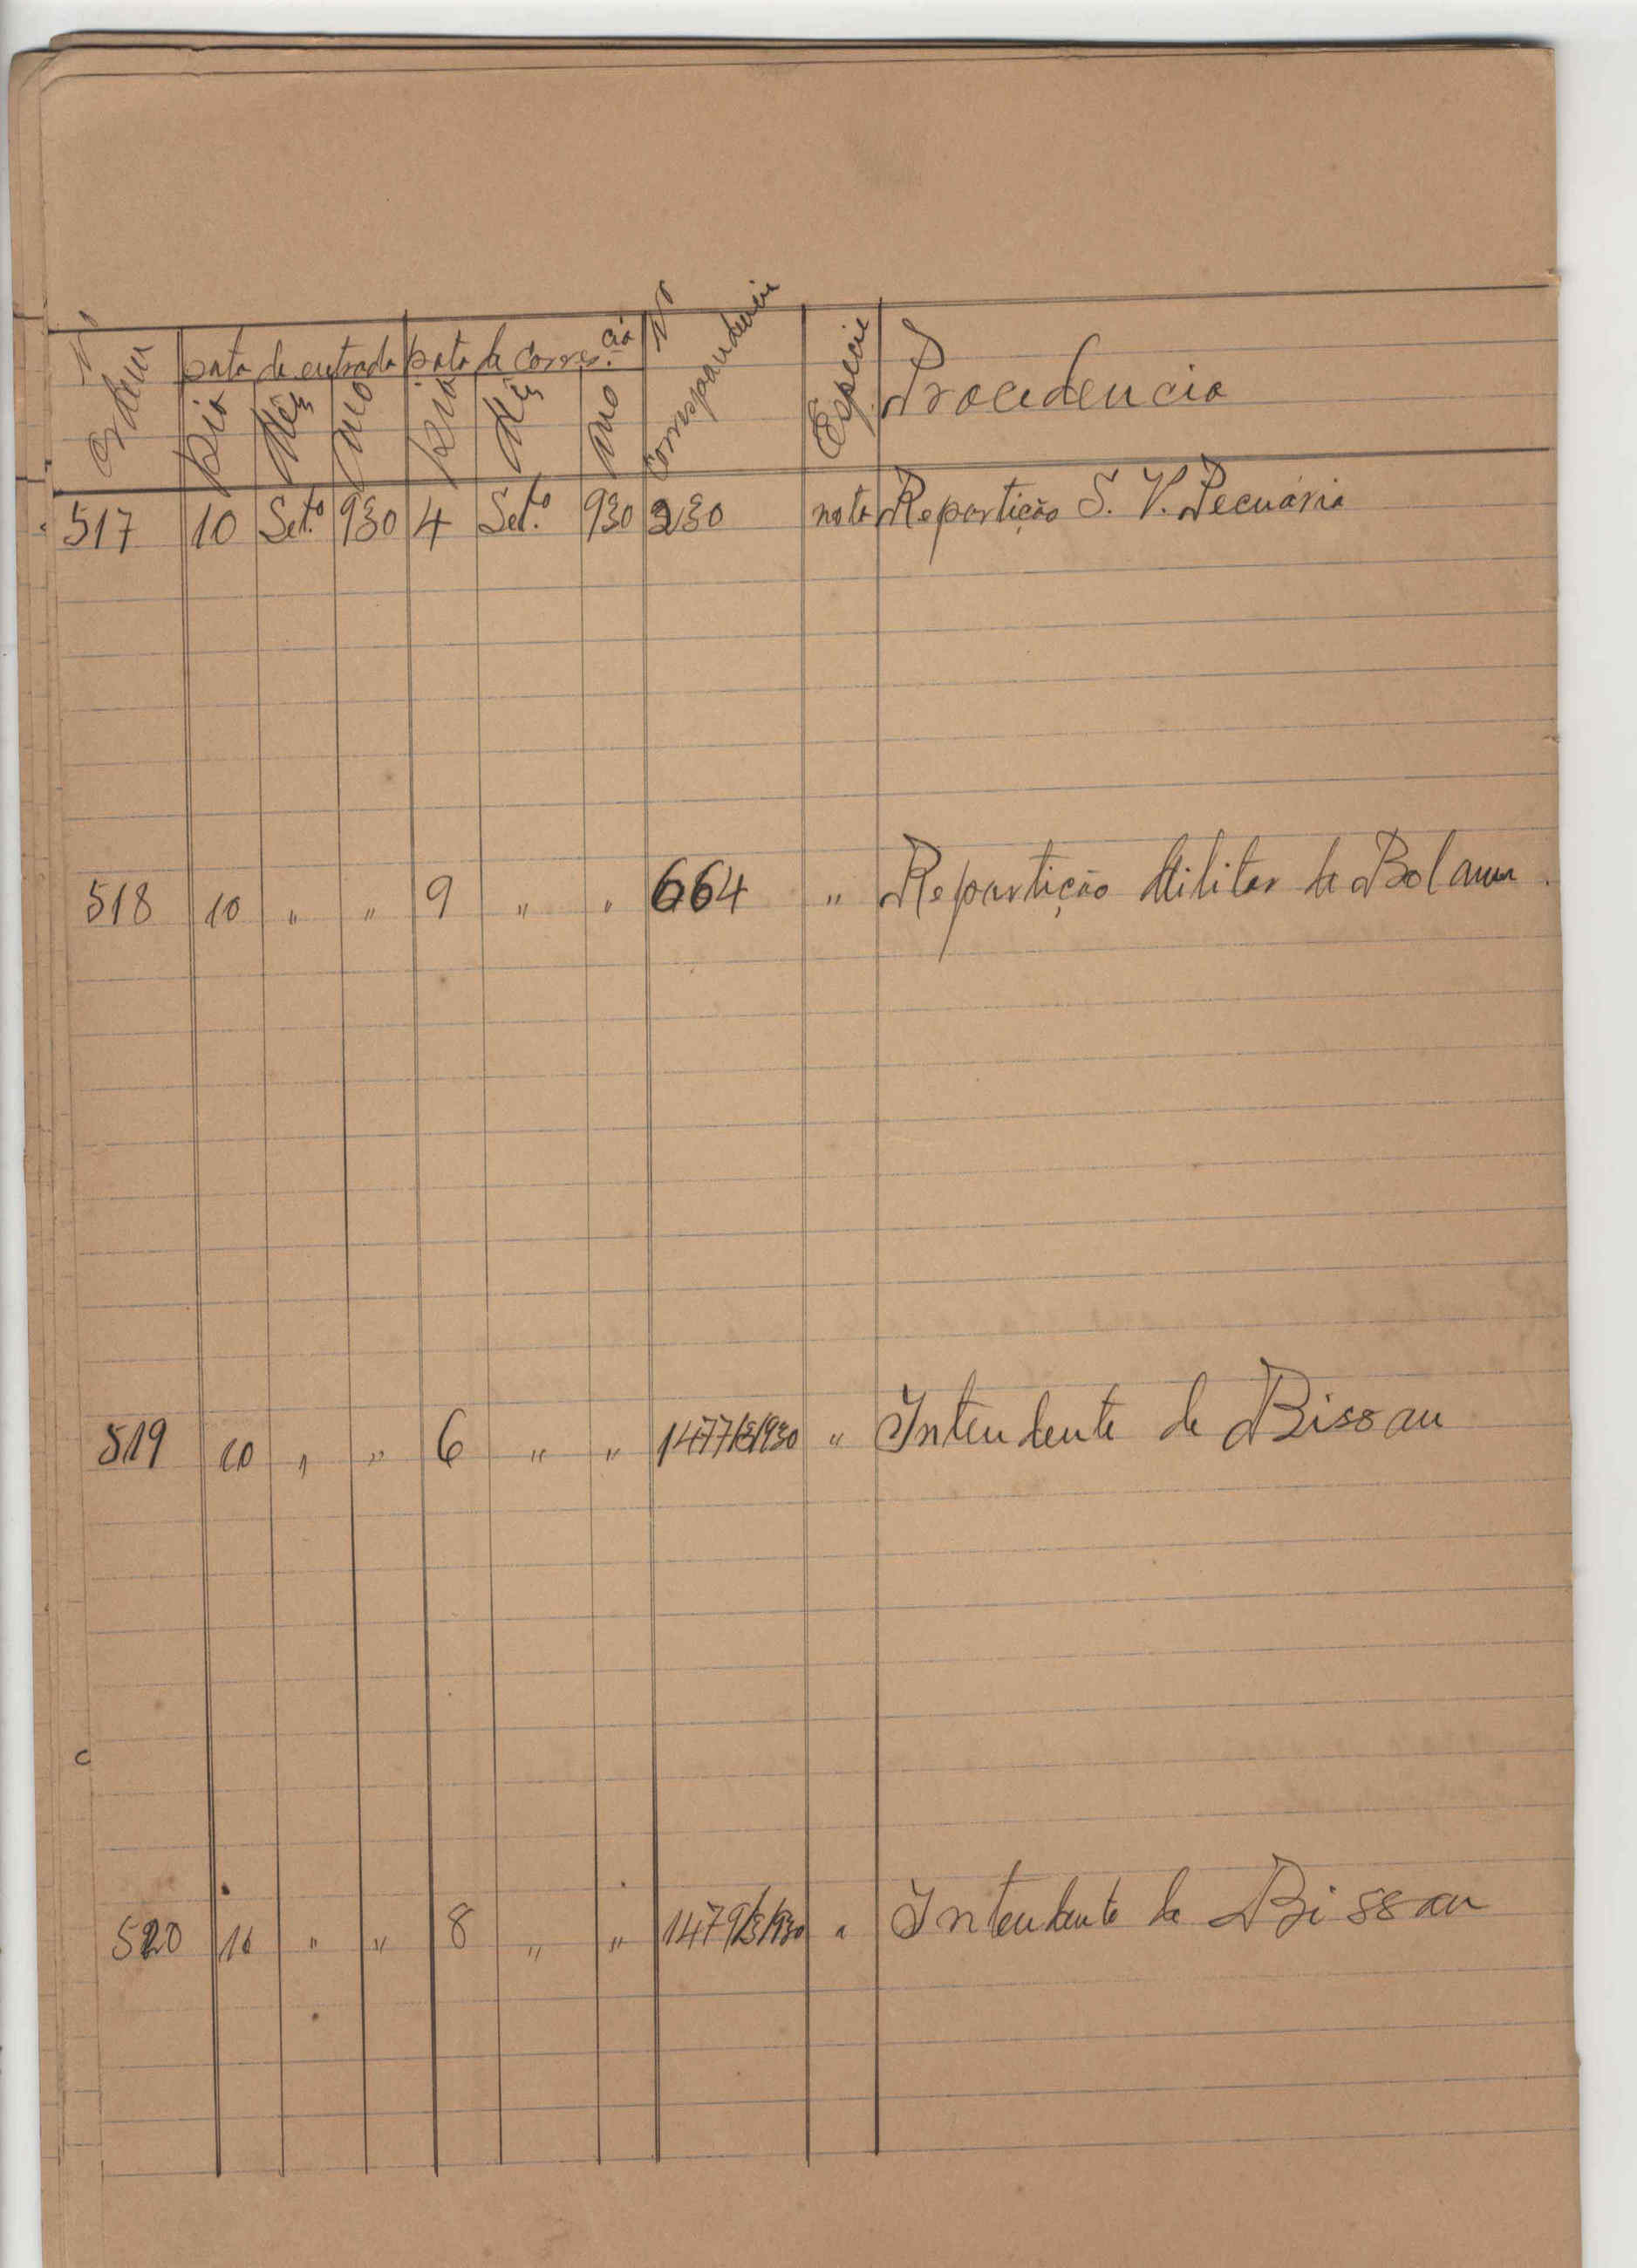 Nº Ordem Data de entrada Data de Corres.cia Nº Correspondencia Especie Procedencia
Dia Mês Ano Dia Mês Ano
517 10 Set.º 930 4 Set.º 930 230 nota Repartição S. V. Pecuária
518 10 " " 9 " " 664 " Repartição Militar de Bolama
519 10 " " 6 " " 1477/E/930 " Intendente de Bissau
c
520 10 " " 8 " " 1479/E/930 " Intendente de Bissau